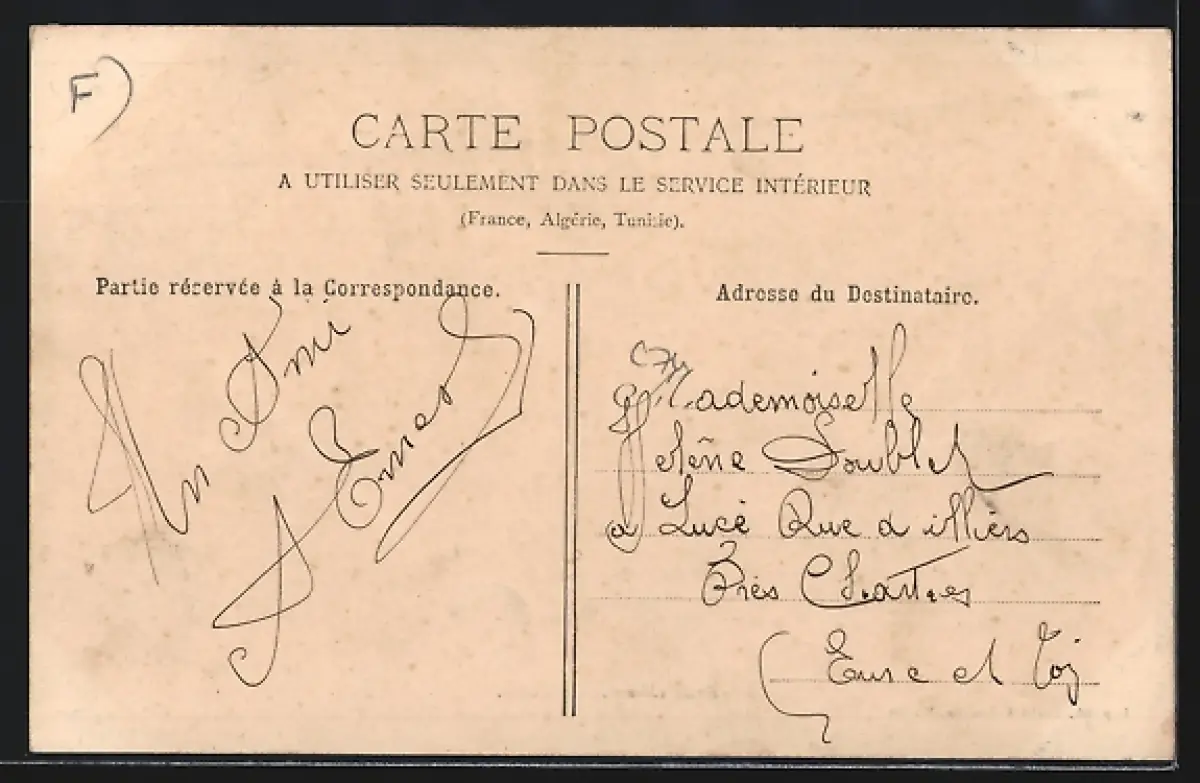 F)
CARTE POSTALE
A UTILISER SEULEMENT DANS LE SERVICE INTÉRIEUR
(France, Algérie, Tunisie).
Partie réservée à la Correspondance.
Un Ami
Ernest
Adresse du Destinataire.
Mademoiselle
Helène Doublet
a Lucé Rue d illiers
Près Chartres
(Eure et Loi